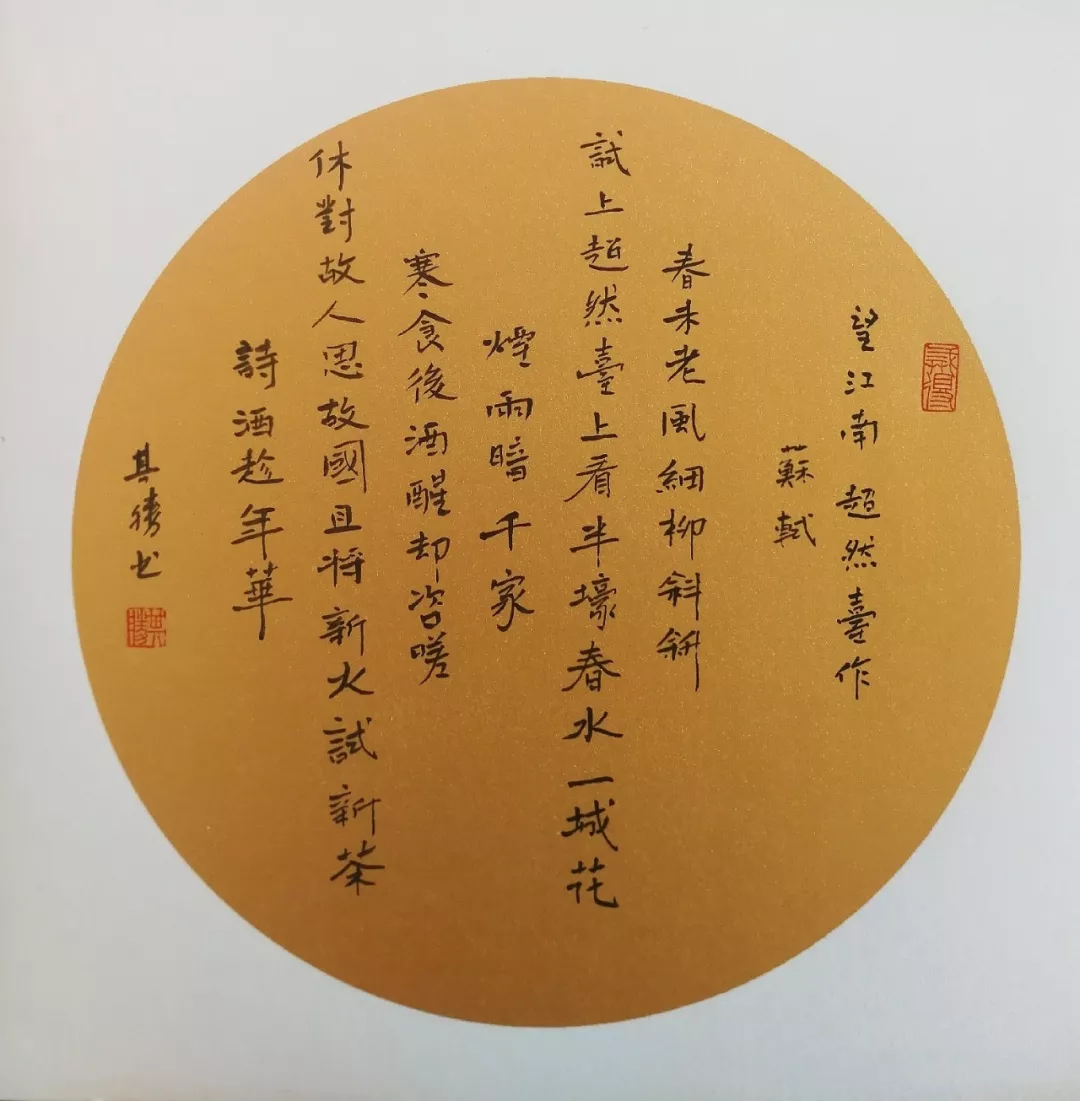 望江南 超然臺作
蘇軾
春未老風細柳斜斜
試上超然臺上看半壕春水一城花
煙雨暗千家
寒食後酒醒却咨嗟
休對故人思故國且將新火試新茶
詩酒趁年華
其勝书
其勝